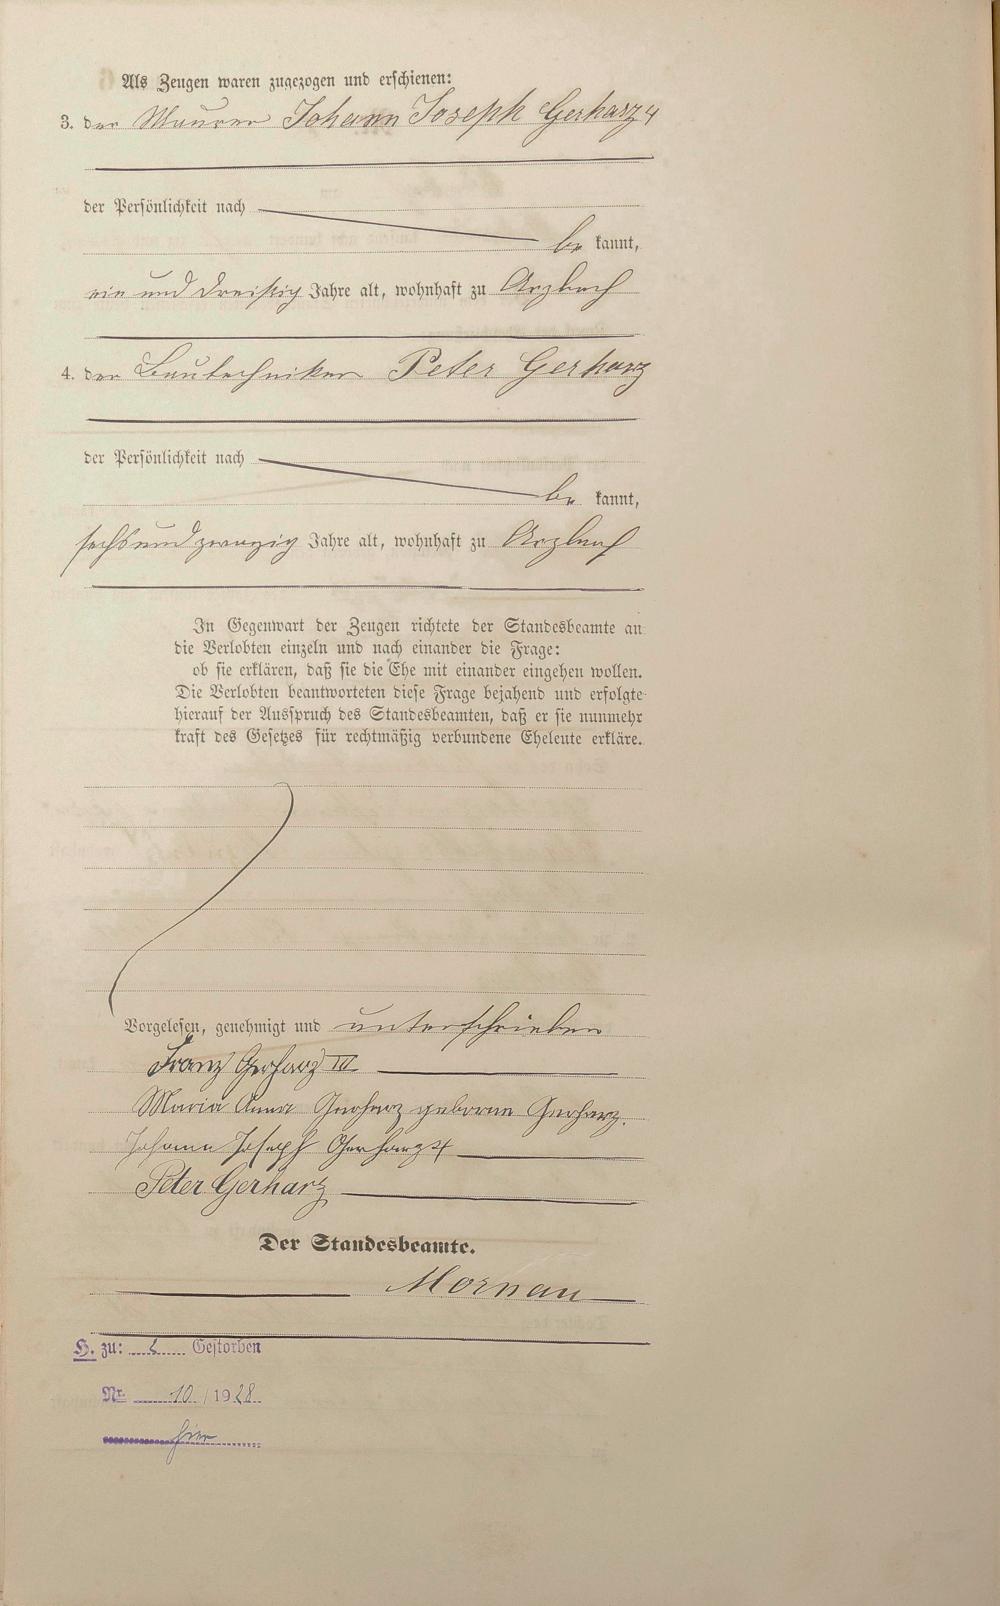 Als Zeugen waren zugezogen und erschienen:
3. der Maurer Johann Joseph Gerharz 4
der Persönlichkeit nach
be kannt,
ein und dreißig Jahre alt, wohnhaft zu Arzbach
4. der Bautechniker Peter Gerharz
der Persönlichkeit nach
be kannt,
sechsundzwanzig Jahre alt, wohnhaft zu Arzbach
In Gegenwart der Zeugen richtete der Standesbeamte an
die Verlobten einzeln und nach einander die Frage:
ob sie erklären, daß sie die Ehe mit einander eingehen wollen.
Die Verlobten beantworteten diese Frage bejahend und erfolgte
hierauf der Ausspruch des Standesbeamten, daß er sie nunmehr
kraft des Gesetzes für rechtmäßig verbundene Eheleute erkläre.
Vorgelesen, genehmigt und unterschrieben
Franz Gerharz III
Maria Anna Gerharz geborne Gerharz.
Johann Joseph Gerharz 4
Peter Gerharz
Der Standesbeamte.
Mornau
H. zu: 2 Gestorben
Nr. 10/1928
hier